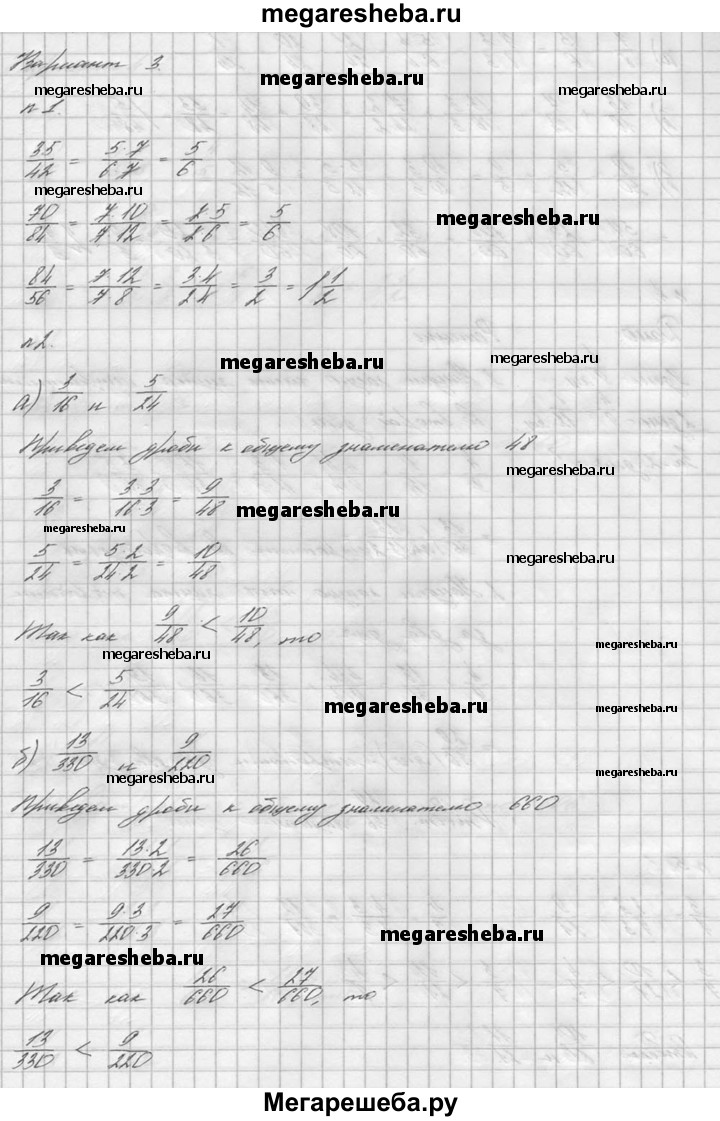 megaresheba.ru
Вариант 3
megaresheba.ru megaresheba.ru megaresheba.ru
п 1.
35/42 = 5·7/6·7 = 5/6
megaresheba.ru
70/84 = 7·10/7·12 = 2·5/2·6 = 5/6
megaresheba.ru
84/56 = 7·12/7·8 = 3·4/2·4 = 3/2 = 1 1/2
п2.
megaresheba.ru megaresheba.ru
а) 3/16 и 5/24
Приведем дроби к общему знаменателю 48
megaresheba.ru
3/16 = 3·3/16·3 = 9/48
megaresheba.ru
megaresheba.ru
5/24 = 5·2/24·2 = 10/48
megaresheba.ru
Так как 9/48 < 10/48, то
megaresheba.ru megaresheba.ru
3/16 < 5/24
megaresheba.ru megaresheba.ru
б) 13/330 и 9/220
megaresheba.ru megaresheba.ru
Приведем дроби к общему знаменателю 660
13/330 = 13·2/330·2 = 26/660
9/220 = 9·3/220·3 = 27/660
megaresheba.ru
megaresheba.ru
Так как 26/660 < 27/660, то
13/330 < 9/220
Мегарешеба.ру